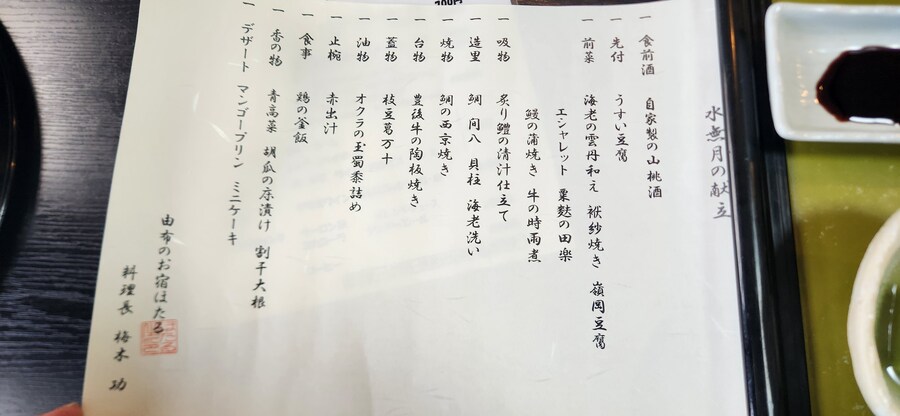 水無月の献立
一 食前酒 自家製の山桃酒
一 先付 うすい豆腐
一 前菜 海老の雲丹和え 袱紗焼き 嶺岡豆腐
エシャレット 粟麩の田楽
鰻の蒲焼き 牛の時雨煮
一 吸物 炙り鱧の清汁仕立て
一 造里 鯛 間八 貝柱 海老洗い
一 焼物 鯛の西京焼き
一 台物 豊後牛の陶板焼き
一 蓋物 枝豆葛万十
一 油物 オクラの玉蜀黍詰め
一 止椀 赤出汁
一 食事 鶏の釜飯
一 香の物 青高菜 胡瓜の床漬け 割干大根
一 デザート マンゴープリン ミニケーキ
由布のお宿ほたる
料理長 梅木 功